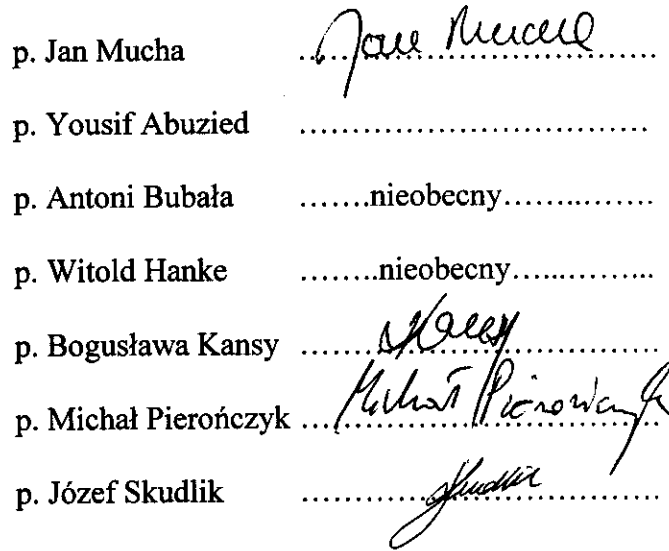 p. Jan Mucha ....Jan Mucha....
p. Yousif Abuzied ....................................
p. Antoni Bubała .......nieobecny..............
p. Witold Hanke ........nieobecny..............
p. Bogusława Kansy .......Kansy.......
p. Michał Pierończyk Michał Pierończyk
p. Józef Skudlik .......Skudlik.......